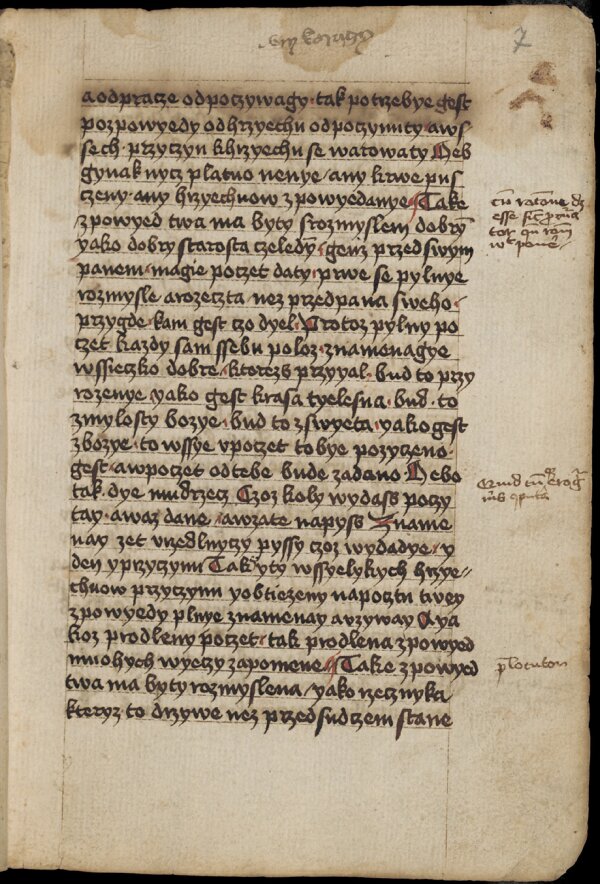 7
a odpracze odpoczywagy · tak potrzebye gest
pozpowyedy odhrzyechu odpoczynuty aws
sech · przyczyn khrzyechu se warowaty Neb
gynak nycz platno nenye / any krwe pus
czeny · any hrzyechuow zpowyedanye Take
zpowyed twa ma byty srozmyslem dobrȳ
yako dobry starosta czeledȳ · genz przed swym
panem · magie poczet daty · prwe se pylnye
rozmysle a rozeczta · nez przed pana sweho ·
przygde · kam gest czo dyel · Protoz pylny po
czet kazdy sam ssebu poloz · znamenagye
wssieczko dobre · kterezs przyyal · bud to przy
rozenye yako gest krasa tyelesna · bud · to
zmylosty bozye · bud to zswyeta · yako gest
zbozye · to wssye vpoczet tobye pozyczeno ·
gest · awpoczet od tebe bude zadano Nebo
tak · dye mudrzecz Czoz koly wydass poczy
tay · awaz dane / awzate napyss Zname
nay zet vrzedlnyczy pyssy czoz wydadye / y
den yprzyczynu Tak yty wssyelykych hrzye
chuow przyczynu yobtiezeny napocztu twey
zpowyedy plnye znamenay a vzyway A ya
koz prodleny poczet · tak prodlena zpowyed
mnohych wyeczy zapomene Take zpowyed
twa ma byty rozmyslena / yako rzecznyka
kteryz · to drzywe nez przed sudczem stane